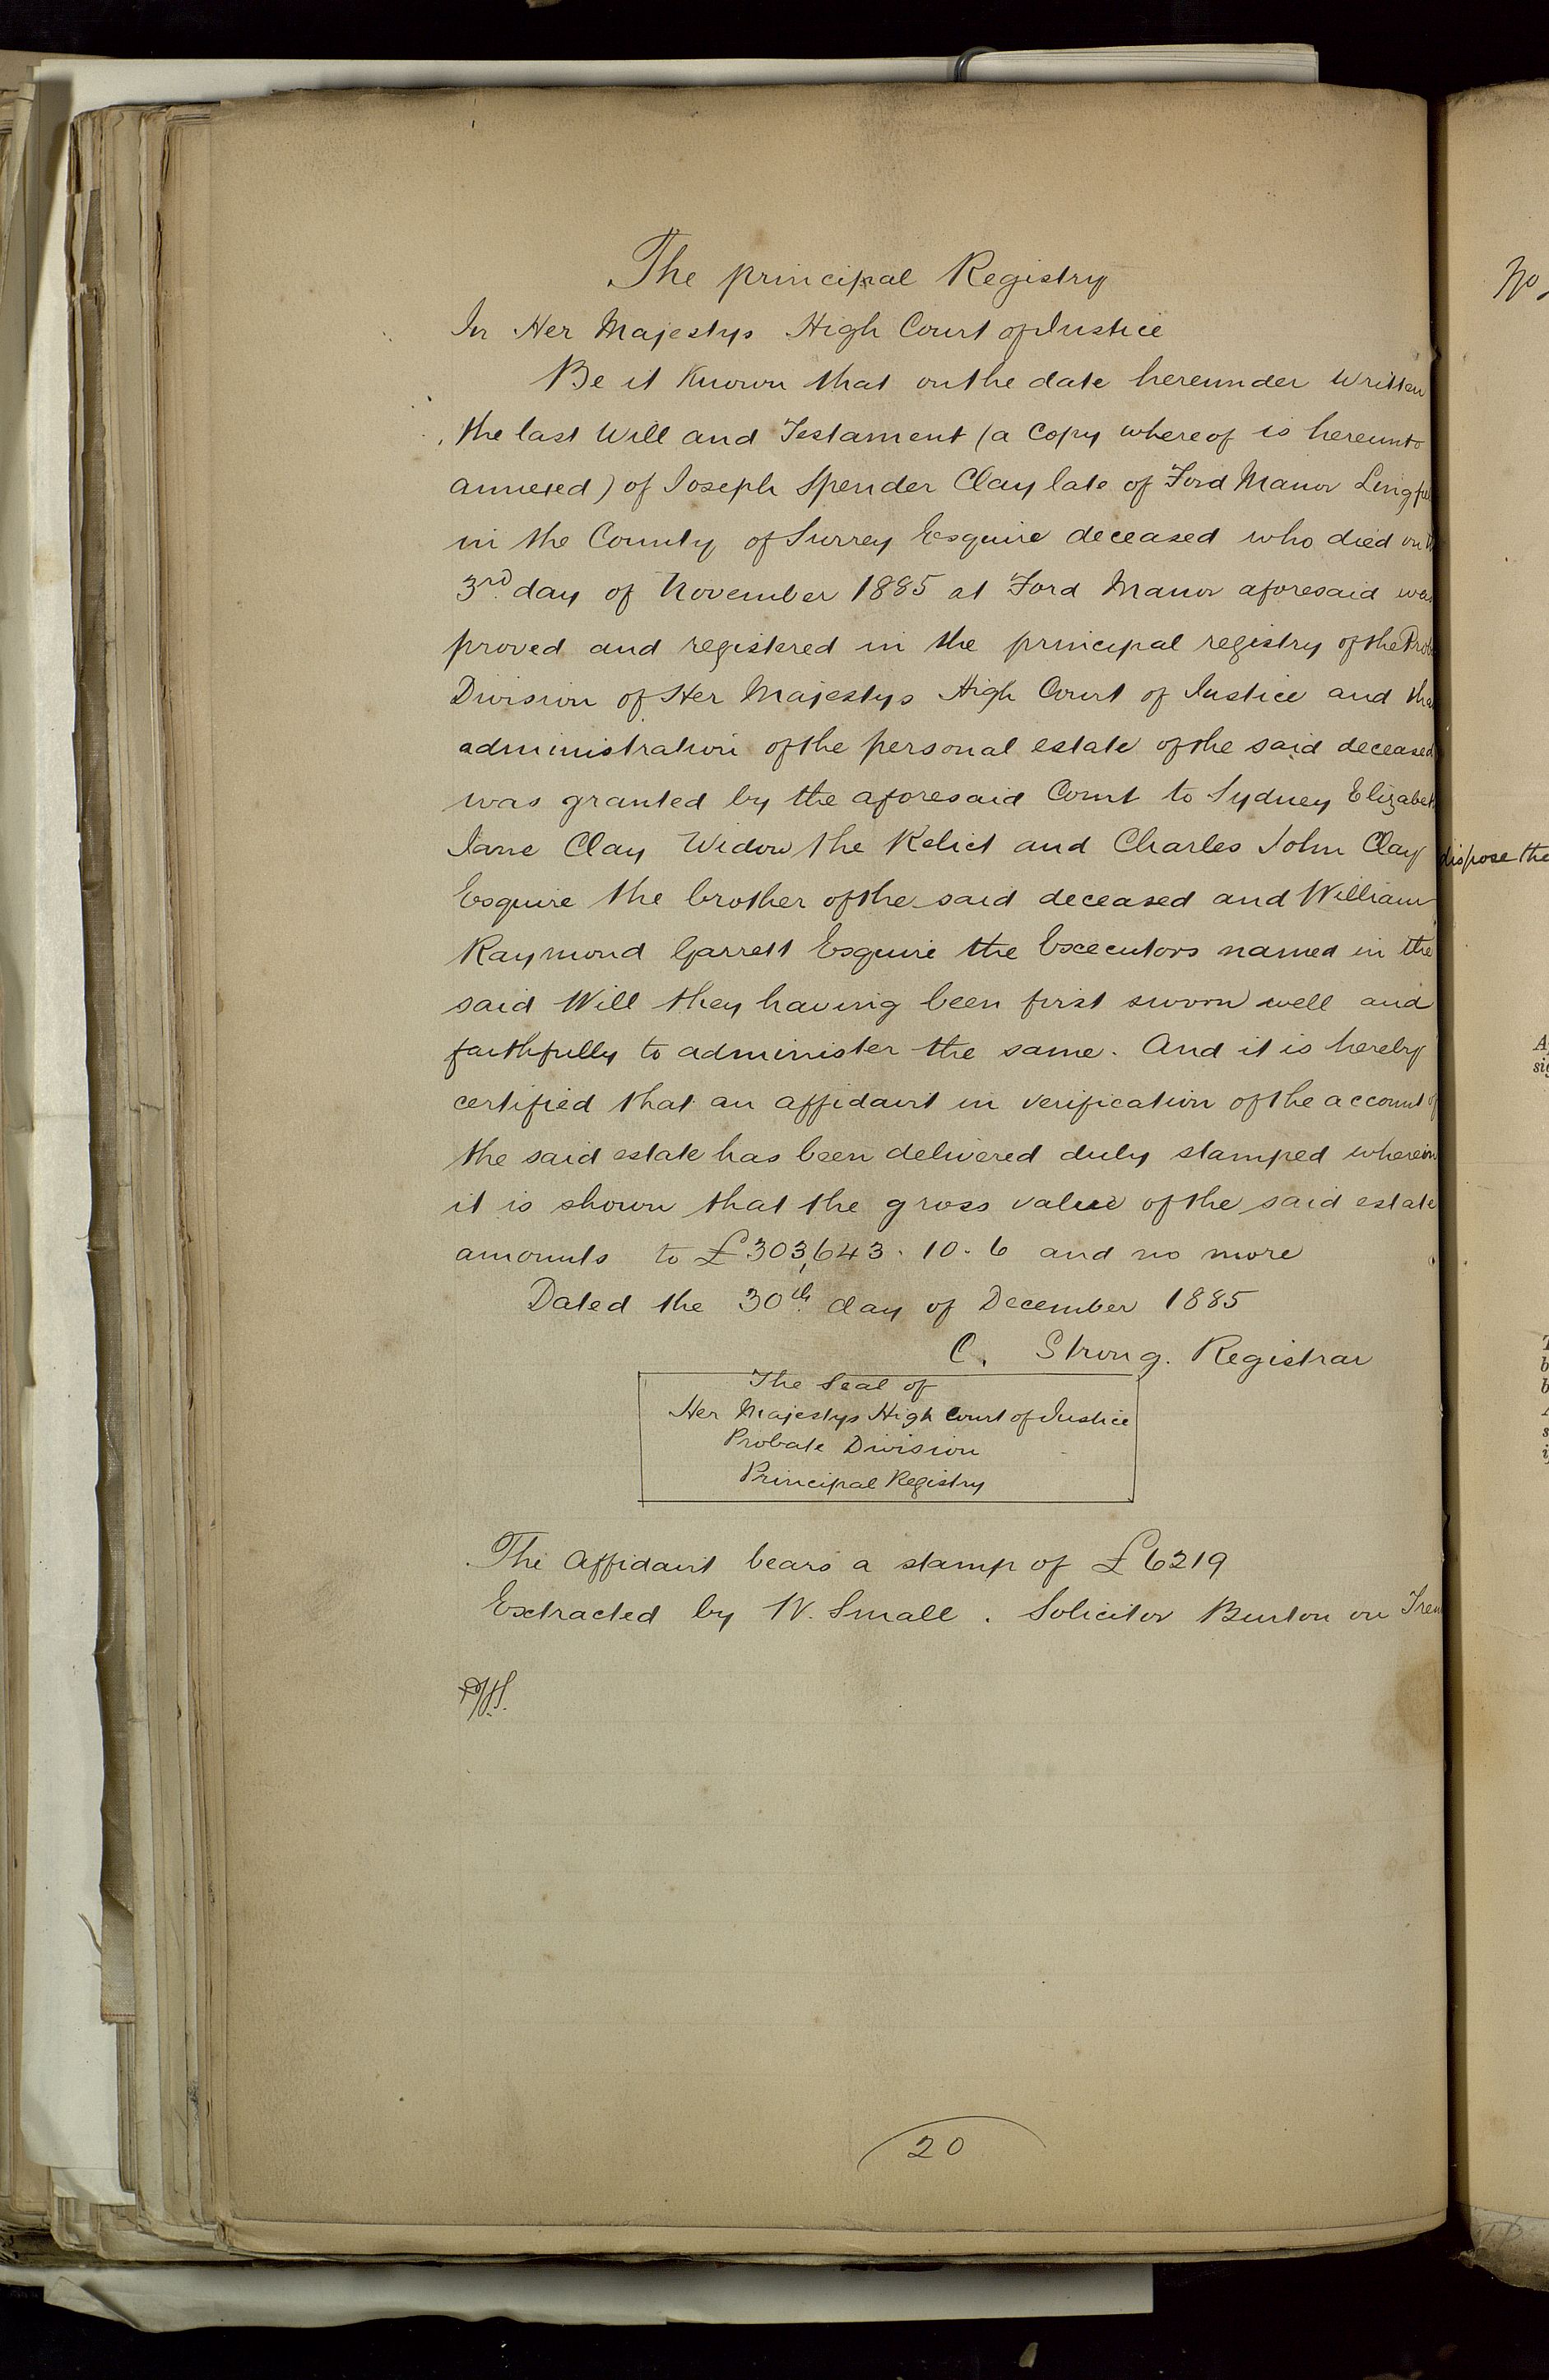 The principal Registry
In Her Majestys High Court of Justice
Be it Known that on the date hereunder written
the last Will and Testament (a Copy whereof is hereunto
annexed) of Joseph Spender Clay late of Ford Manor
in the County of Surrey Esquire deceased who died on
3rd day of November 1885 at Ford Manor aforesaid was
proved and registered in the principal registry of the
Division of Her Majestys High Court of Justice and
administration of the personal estate of the said deceased
was granted by the aforesaid Court to Sydney
Jane Clay Widow the Relict and Charles John Clay
Esquire the brother of the said deceased and William
Raymond Garrett Esquire the Excecutors named in the
said Will they having been first sworn well and
faithfully to administer the same. And it is hereby
certified that an affidavit in verification of the account
the said estate has been delivered duly stamped wherein
it is shown that the gross value of the said estate
amounts to £303,643. 10. 6 and no more
Dated the 30th day of December 1885
C. Strong. Registrar
The Seal of
Her Majestys High Court of Justice
Probate Division
Principal Registry
The Affidavit bears a stamp of £6219
Extracted by W. Small. Solicitor Burton on
20
No
dispose the